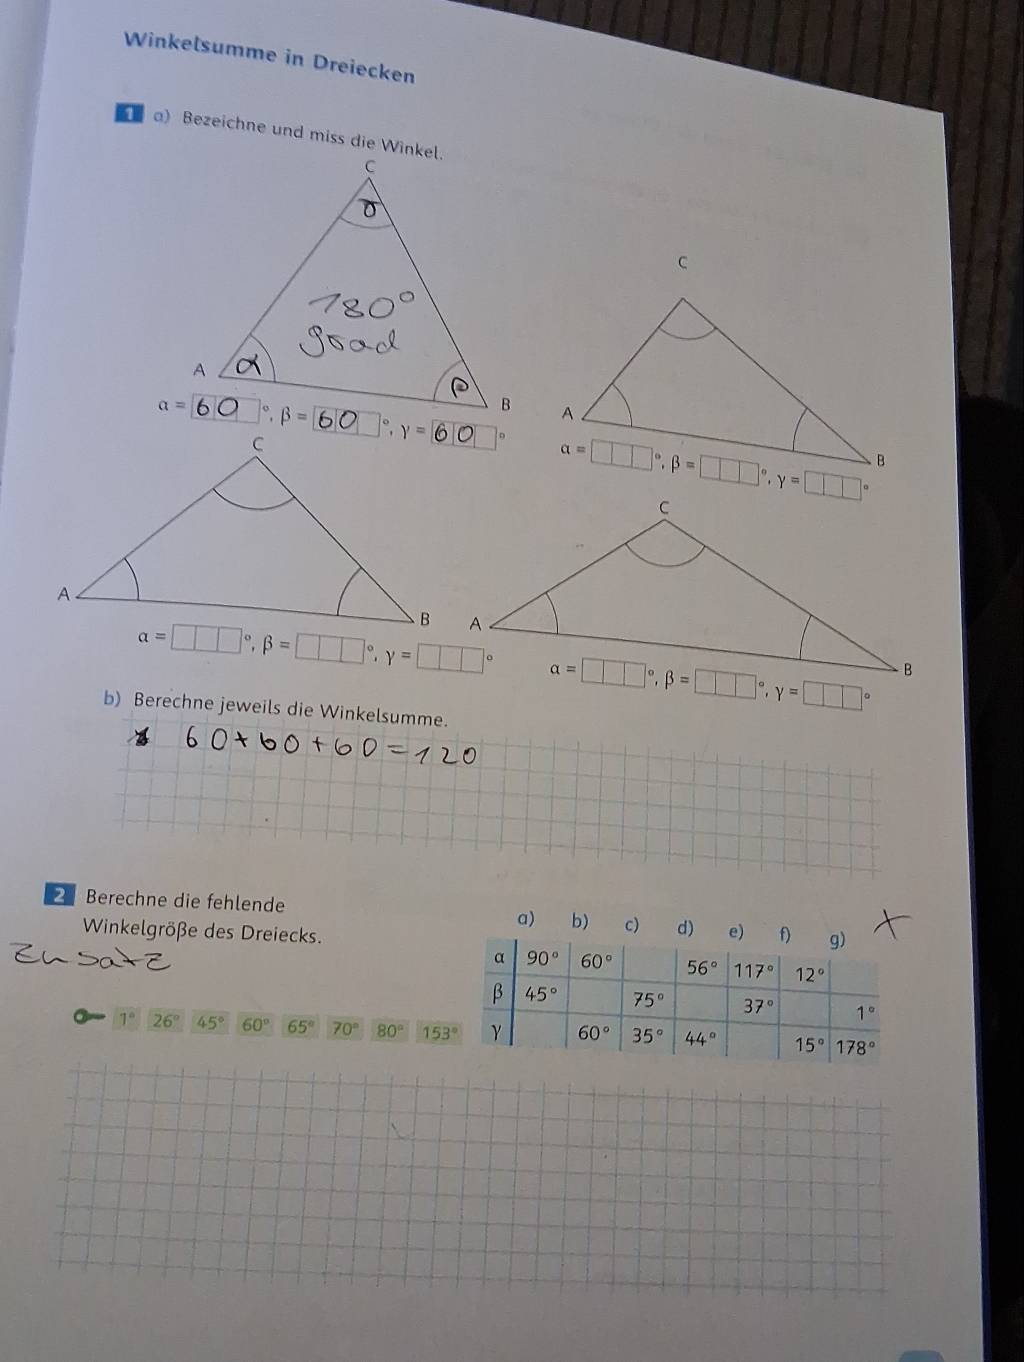 Winkelsumme in Dreiecken
1 a) Bezeichne und miss die Winkel.
C
γ
180°
grad
A α β B
α = 60°, β = 60°, γ = 60°
C
A
B
α = °, β = °, γ = °
C
A
B
α = °, β = °, γ = °
C
A
B
α = °, β = °, γ = °
b) Berechne jeweils die Winkelsumme.
60+60+60=120
2 Berechne die fehlende
Winkelgröße des Dreiecks.
Zusatz
1° 26° 45° 60° 65° 70° 80° 153°
a) b) c) d) e) f) g)
α 90° 60° 56° 117° 12°
β 45° 75° 37° 1°
γ 60° 35° 44° 15° 178°